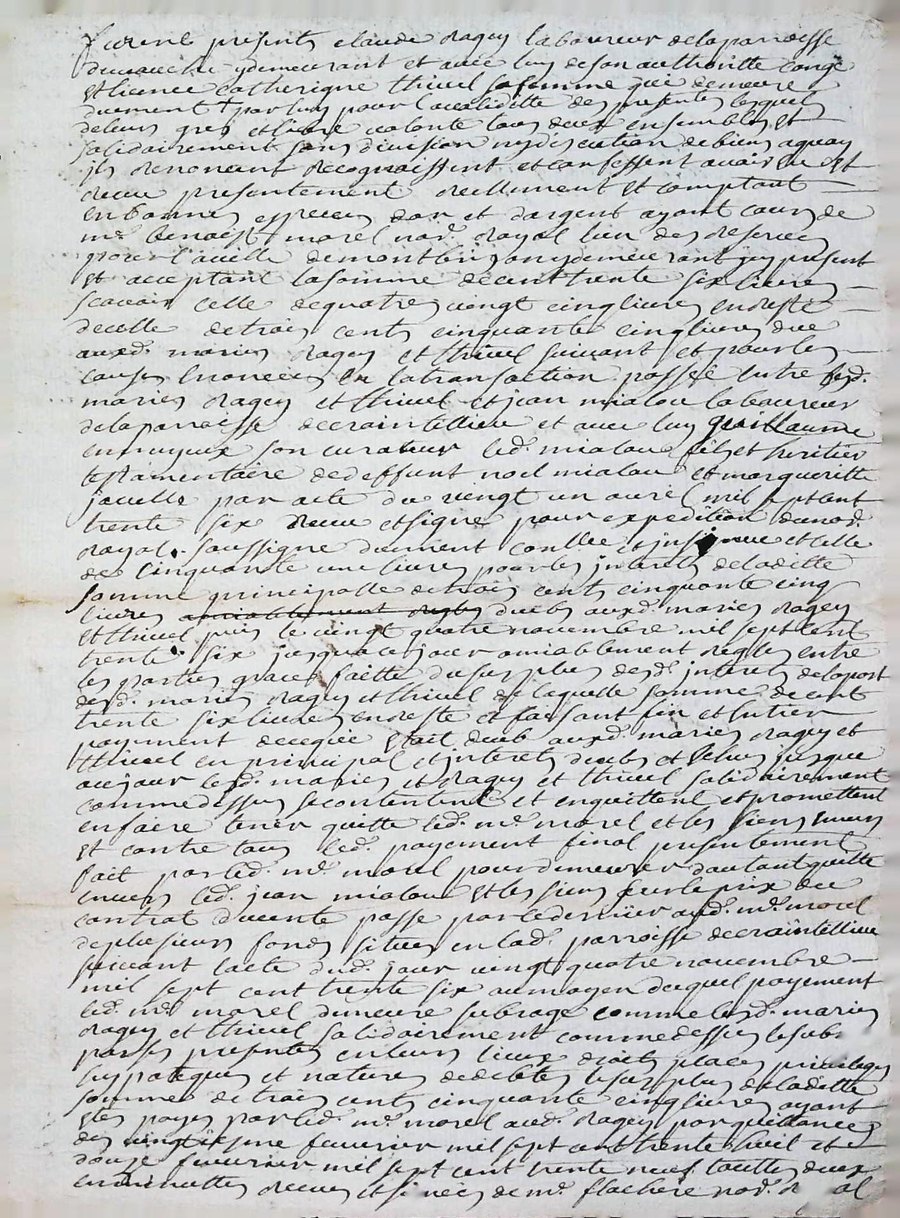 furent presents claude ragey laboureur de la parroisse
demeurant et avec luy de son authoritte congé
et licence catherigne thivel sa femme qui demeure
duement par luy pour la validitte des presentes lesquels
de leurs gres et libre volonte tous deux ensembles et
solidairement sans division ny discution de biens a quoy
ils renoncent recognoissent et confessent avoir eu et
receu presentement reellement et comptant
en bonnes especes dor et dargent ayant cours de
me. benoist morel nore. royal lieu des
y demeurant icy present
et acceptant la somme de cent trente six livres
scavoir celle de quatre vingt cinq livres en reste
de celle de trois cents cinquante cinq livres due
auxd. maries ragey et thivel suivant et pour les
causes enoncees en la transaction passee entre lesd.
maries ragey et thivel et jean mialou laboureur
de la parroisse de craintillieu et avec luy guillaume
son curateur led. mialou fils et heritier
testamentaire de deffunt noel mialou et margueritte
jacelle par acte du vingt un avril mil sept cent
trente six receu et signe pour expedition dunod.
royal soussigne duement conllee et insinuee et celle
de cinquante une livres pour les interets de laditte
somme principalle de trois cents cinquante cinq
livres amiablement regles deubs auxd. maries ragey
et thivel puis le vingt quatre novembre mil sept cent
trente six jusqua ce jour amiablement regles entre
les parties grace faitte du surplus desd. interets de la part
desd. maries ragey et thivel de laquelle somme de cent
trente six livres en reste et faisant fin et entier
payement de ce qui etait deub auxd. maries ragey et
thivel en principal et interets deubs et echus jusque
au jour lesd. maries et ragey et thivel solidairement
comme dessus se contentent et en quittent et promettent
en faire tenir quitte led. me. morel et les siens envers
et contre tous led. payement final presentement
fait par led. me. morel pour demeurer dautant quitte
envers led. jean mialou et les siens sur le prix du
contrat de vente passe par ce dernier aud. me. morel
de plusieurs fonds situes en lad. parroisse de craintillieu
suivant lacte dud. jour vingt quatre novembre
mil sept cent trente six au moyen duquel payement
led. me. morel demeure subroge comme lesd. maries
ragey et thivel solidairement comme dessus le subr
par ses presentes en leurs lieux droits places privileges
hypoteques et nature de debtes le surplus de laditte
somme de trois cents cinquante cinq livres ayant
ete paye par led. me. morel aud. ragey par quittances
des fevrier mil sept cent trente huit et
douze fevrier mil sept cent trente neuf touttes deux
en minuttes receues et signees de me. flachere nore. r al